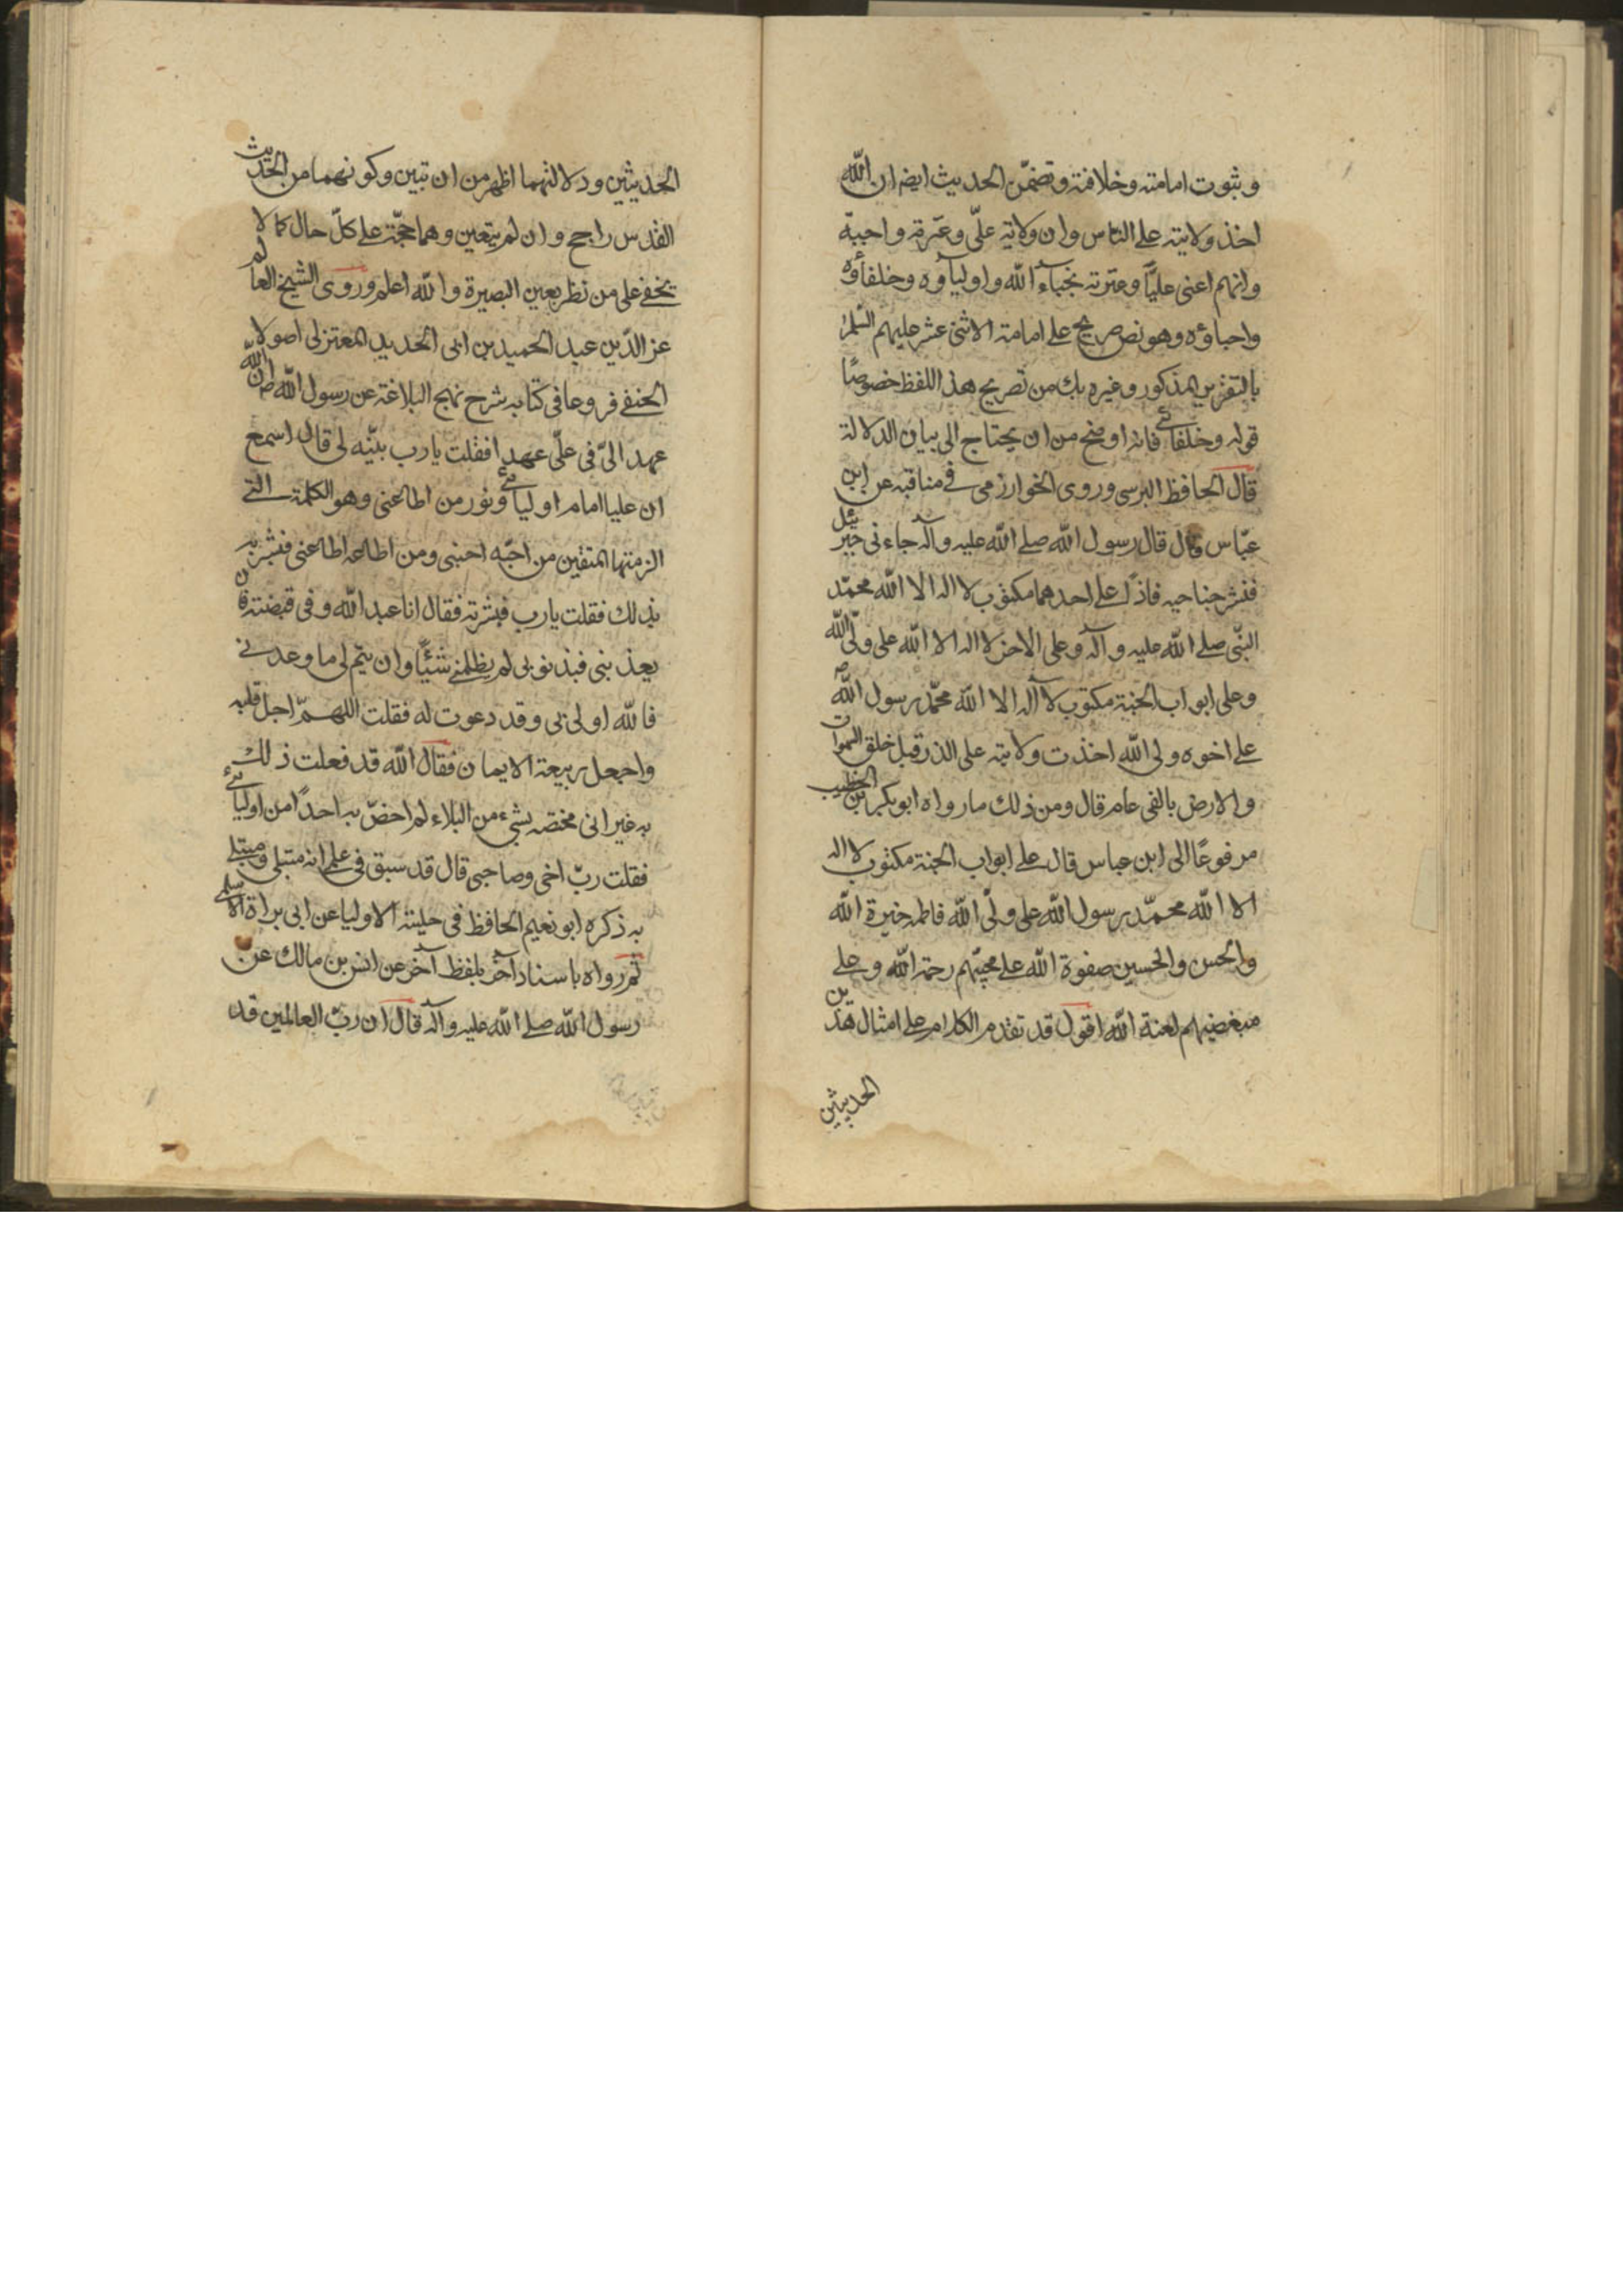 وثبوت امامته وخلافته وتضمّن الحديث ايضا ان الله
اخذ ولايته على الناس وان ولاية علّى وعترته واجبة
وانهم اعنى عليّا وعترته نجباء الله واولياؤه وخلفاؤه
واحباؤه وهو نص صريح على امامة الاثنى عشر عليهم السّلم
بالتقرير المذكور وغيره بك من تصريح هذا اللفظ خصوصًا
قوله وخلفائى فانه اوضح من ان يحتاج الى بيان الدلالة
قال الحافظ البرسى وروى الخوارزمى فى مناقبه عن ابن
عبّاس قال قال رسول الله صلى الله عليه وآله جاءنى جبرئيل
فنشر جناحيه فاذا على احدهما مكتوب لا اله الا الله محمّد
النبّى صلى الله عليه وآله وعلى الاخر لا اله الا الله على ولّى الله
وعلى ابواب الجنة مكتوب لا آله الا الله محمّد رسول الله ص
على اخوه ولى الله اخذت ولايته على الذر قبل خلق السموات
والارض بالفى عام قال ومن ذلك ما رواه ابو بكر بن الخطيب
مرفوعًا الى ابن عباس قال على ابواب الجنة مكتوب لا اله
الا الله محمّد رسول الله على ولّى الله فاطمه خيرة الله
والحسن والحسين صفوة الله على محبّهم رحمة الله وعلى
مبغضيهم لعنة الله اقول قد تقدم الكلام على امثال هذين
الحديثين
الحديثين ودلالتهما اظهر من ان تبين وكونهما من الحديث
القدس راجح وان لم يتعين وهما حجّة على كلّ حال كما لا
يخفى على من نظر بعين البصيرة والله اعلم وروى الشيخ العالم
عز الدّين عبد الحميد بن ابى الحديد المعتزلى اصولا
الحنفى فروعا فى كتابه شرح نهج البلاغة عن رسول الله ص ان الله
عهد الىّ فى علّى عهدا فقلت يا رب بيّنه لى قال اسمع
ان عليا امام اوليائى ونور من اطاعنى وهو الكلمة التى
الزمتها المتقين من احبّه احبنى ومن اطاعه اطاعنى فبشره
بذلك فقلت يا رب فبشرته فقال انا عبد الله وفى قبضته فان
يعذبنى فبذنوبى لم يظلمنى شيئًا وان يتم لى ما وعدنى
فالله اولى بى وقد دعوت له فقلت اللهمّ اجل قلبه
واجعل ربيعة الايمان فقال الله قد فعلت ذلك
به غير انى مختصه بشىء من البلاء لم اخصّ به احدًا من اوليائى
فقلت ربّ اخى وصاحبى قال قد سبق فى علمى انه مبتلى ومبتلى
به ذكره ابو نعيم الحافظ فى حلية الاوليا عن ابى براة الاسلمى
ثم رواه باسناد آخر بلفظ آخر عن انس بن مالك عن
رسول الله صلى الله عليه وآله قال ان ربّ العالمين قد